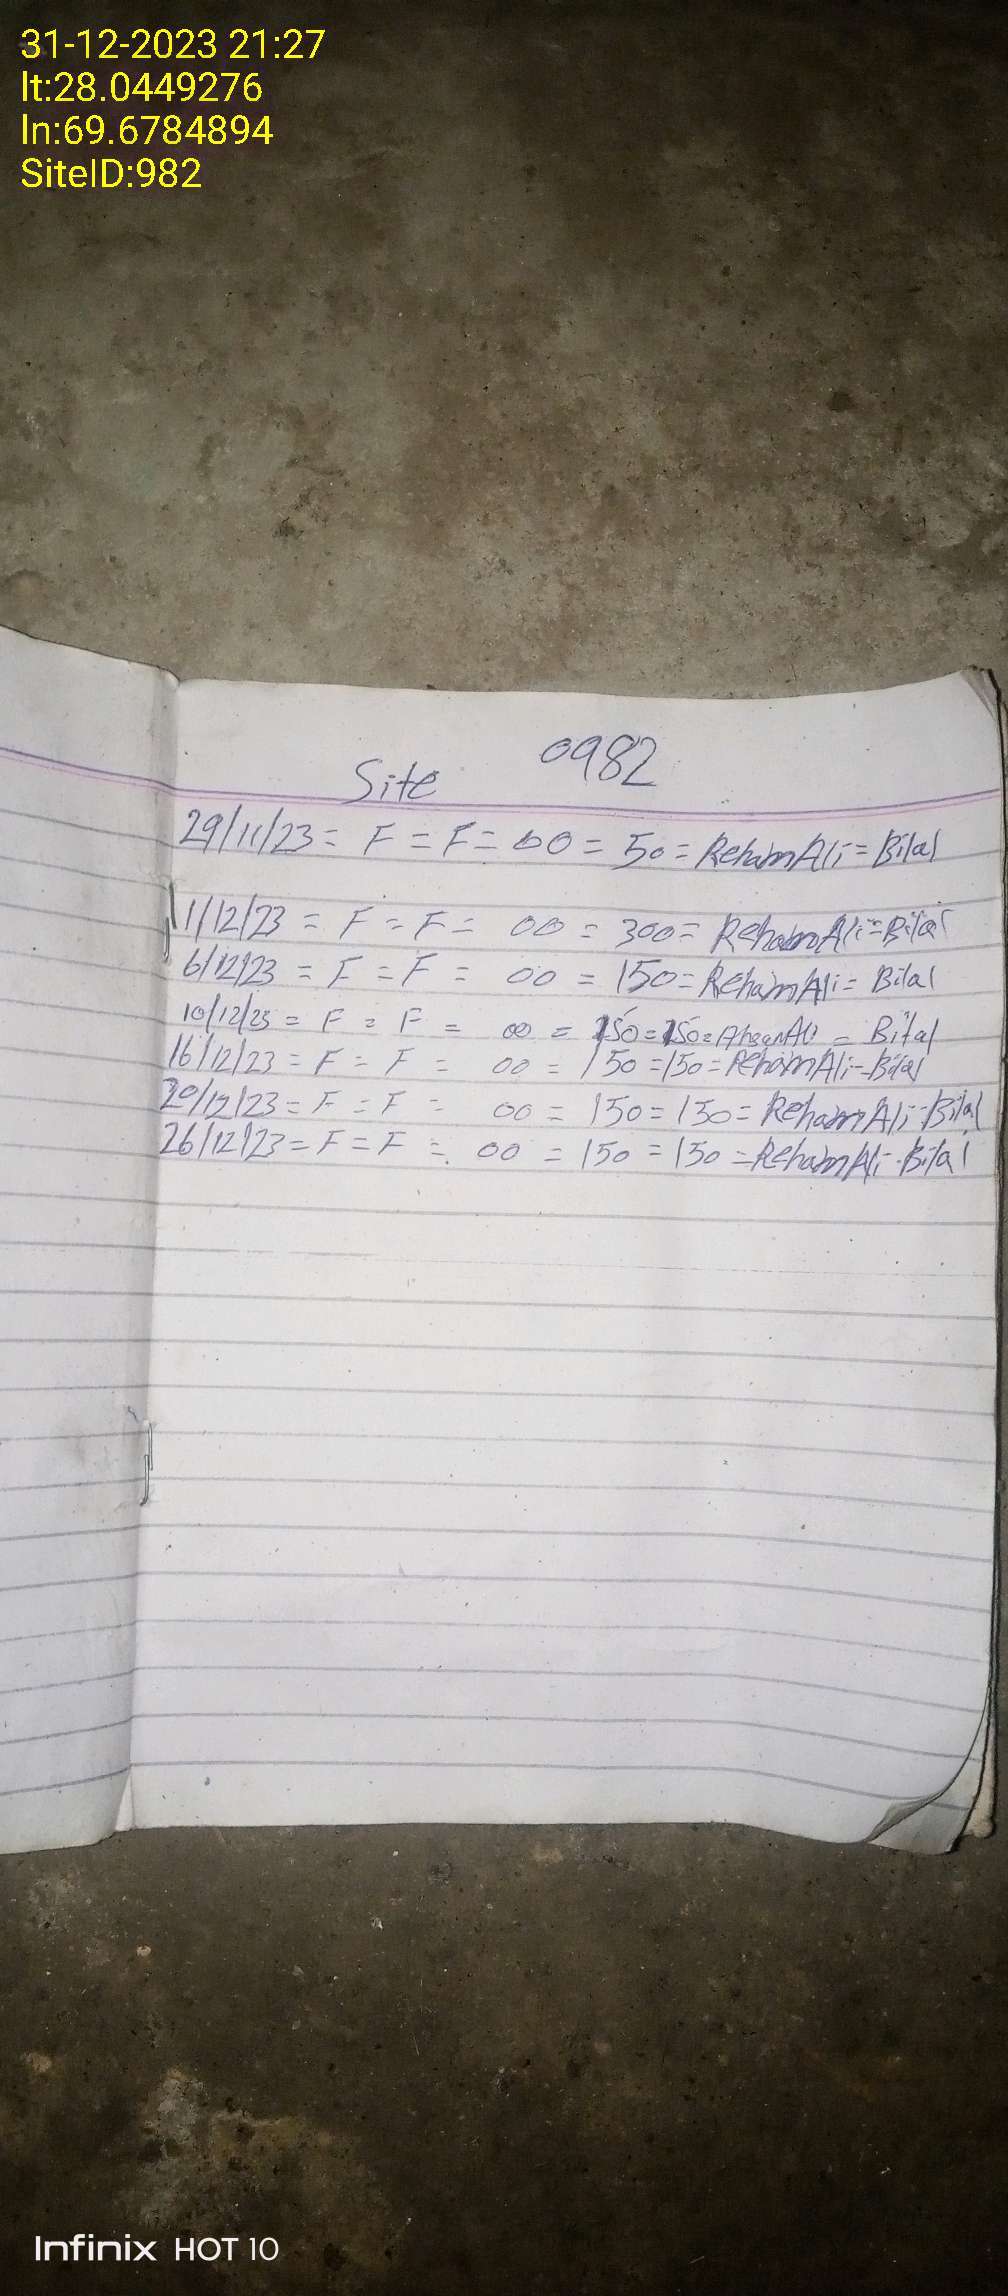 31-12-2023 21:27
lt:28.0449276
ln:69.6784894
SiteID:982
Site 0982
29/11/23 = F = F = 00 = 50 = RehamAli = Bilal
1/12/23 = F = F = 00 = 300 = RehamAli = Bilal
6/12/23 = F = F = 00 = 150 = RehamAli = Bilal
10/12/23 = F = F = 00 = 150 = 150 = AhsanAli = Bilal
16/12/23 = F = F = 00 = 150 = 150 = RehamAli - Bilal
20/12/23 = F = F = 00 = 150 = 150 = RehamAli - Bilal
26/12/23 = F = F = 00 = 150 = 150 = RehamAli - Bilal
Infinix HOT 10